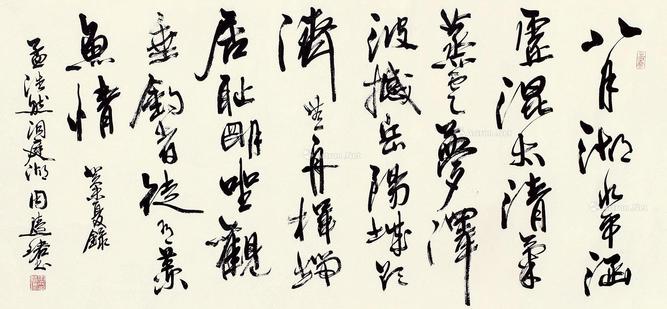 八月湖水平涵
虛混太清氣
蒸雲夢澤
波撼岳陽城欲
濟無舟楫端
居耻明坐觀
垂釣者徒有羨
魚情
夏錄
孟浩然洞庭湖 周書